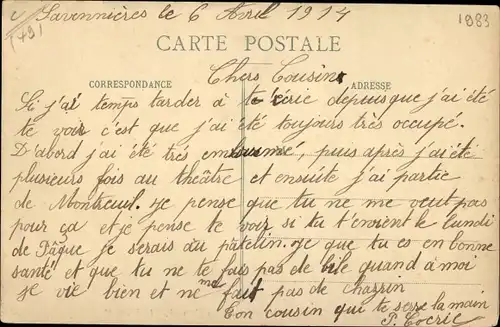 Savennières le 6 Avril 1914
(79)
1983
CARTE POSTALE
CORRESPONDANCE
ADRESSE
Chers Cousin
Si j'ai temps tarder à te érie depuis que j'ai été
te voir c'est que j'ai été toujours très occupé.
D'abord j'ai été très, puis après j'ai été
plusieurs fois au théâtre et ensuite j'ai partie
de Montreuil. Je pense que tu ne me veut pas
pour ça et je pense te voir si tu t'envient le lundi
de Pâque je serais au patelin. Je que tu es en bonne
santé et que tu ne te fais pas de bile quand à moi
je vie bien et ne me fait pas de chagrin
Ton cousin qui te serre la main